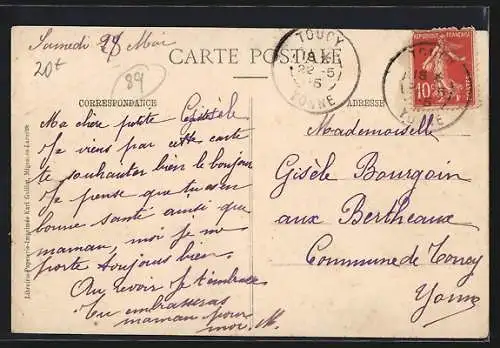 Samedi 28 Mai
20t
89
CARTE POSTALE
TOUCY
18 K
22-5
YONNE
REPUBLIQUE FRANÇAISE
10
YONNE
CORRESPONDANCE
ADRESSE
Ma chère petite Gisèle
Je viens par cette carte
te souhaiter bien le bonjour
Je pense que tu as une
bonne santé ainsi que
maman, moi je me
porte toujours bien.
Au revoir Je t'embrasse
Tu embrasseras
maman pour
moi. M.
Mademoiselle
Gisèle Bourgoin
aux Bertheaux
Commune de Toucy
Yonne
Librairie-Papeterie-Imprimerie Karl Guillot,